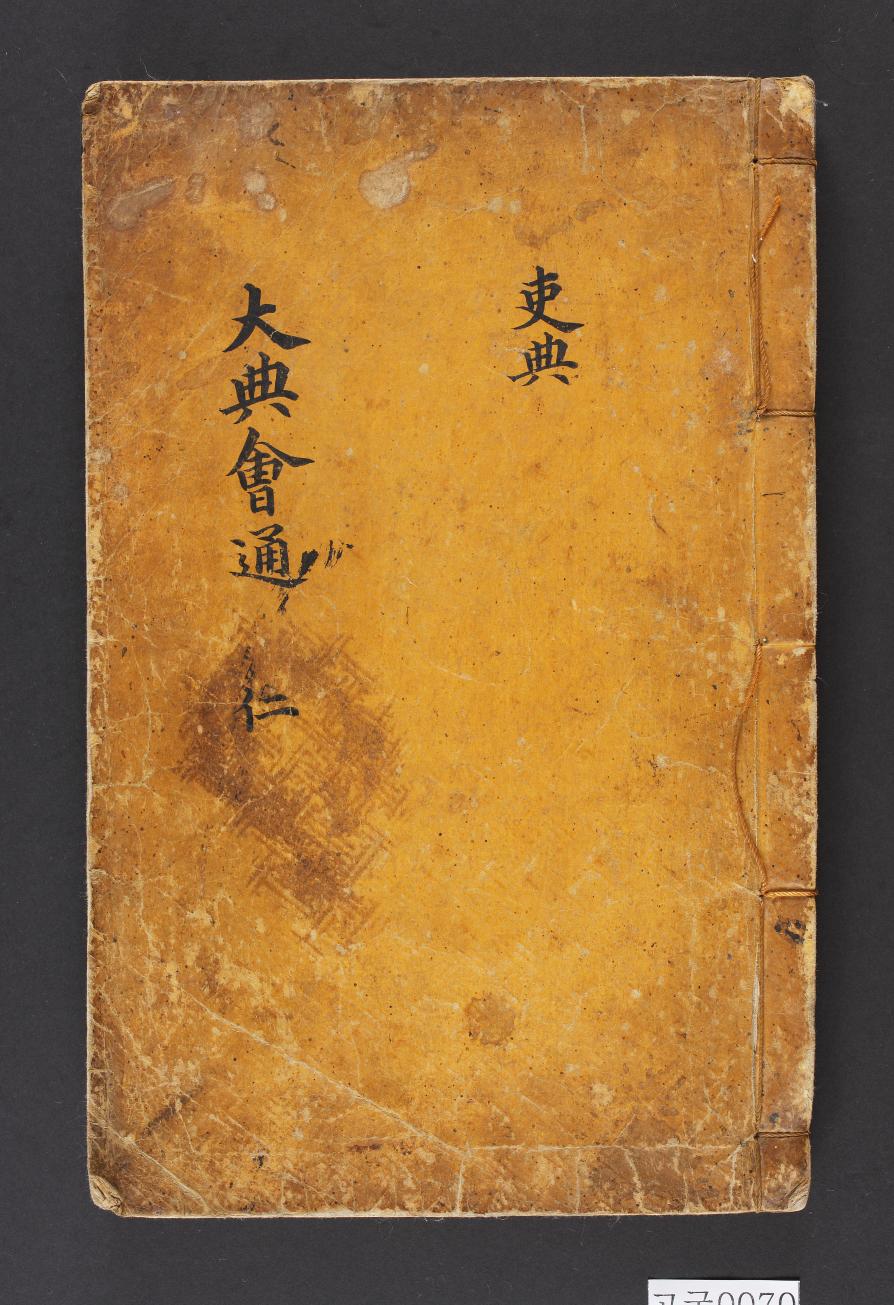 吏典
大典會通 仁
고궁0070